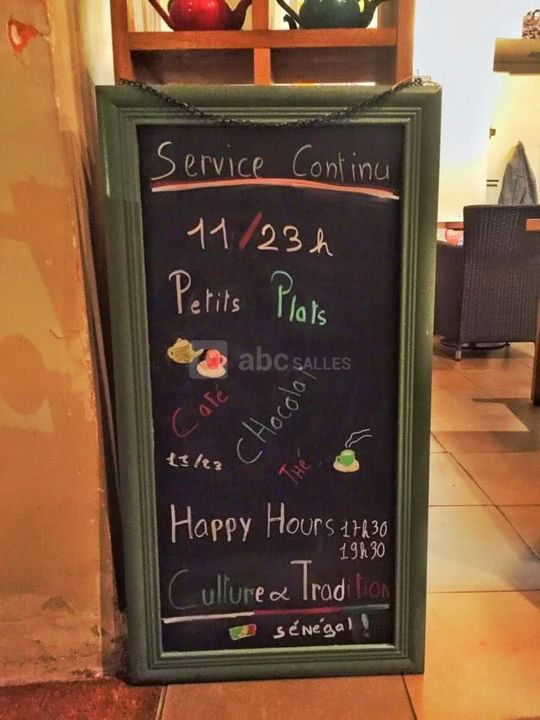 Service Continu
11/23h
Petits Plats
abc SALLES
Café
CHocolat
13/23
THé
Happy Hours 17h30
19h30
Culture & Tradition
SéNégal!